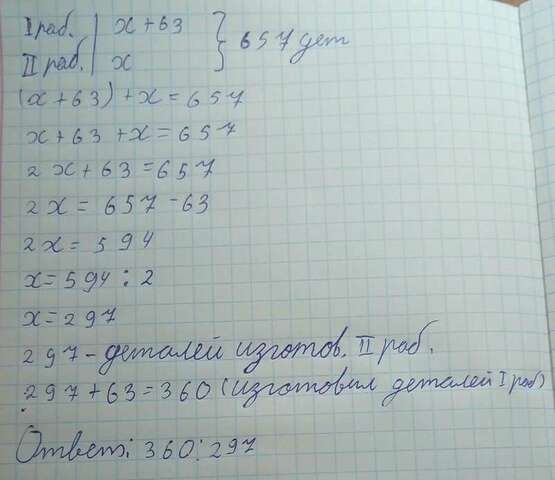 I раб. | x + 63 } 657 дет
II раб. | x
(x + 63) + x = 657
x + 63 + x = 657
2x + 63 = 657
2x = 657 - 63
2x = 594
x = 594 : 2
x = 297
297 - деталей изготов. II раб.
297 + 63 = 360 (изготовил деталей I раб)
Ответ: 360; 297